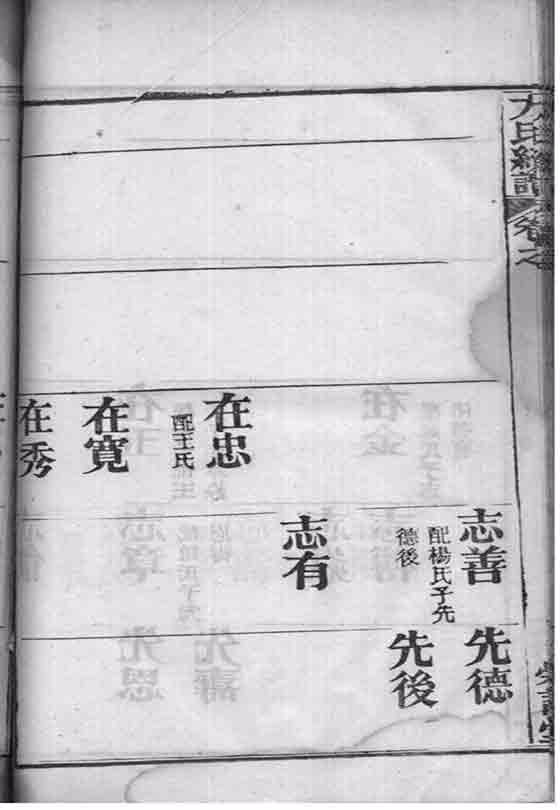 氏總譜 卷之
志善
配楊氏子先
德後
先德
先後
志有
在忠
配王氏
在寬
在秀